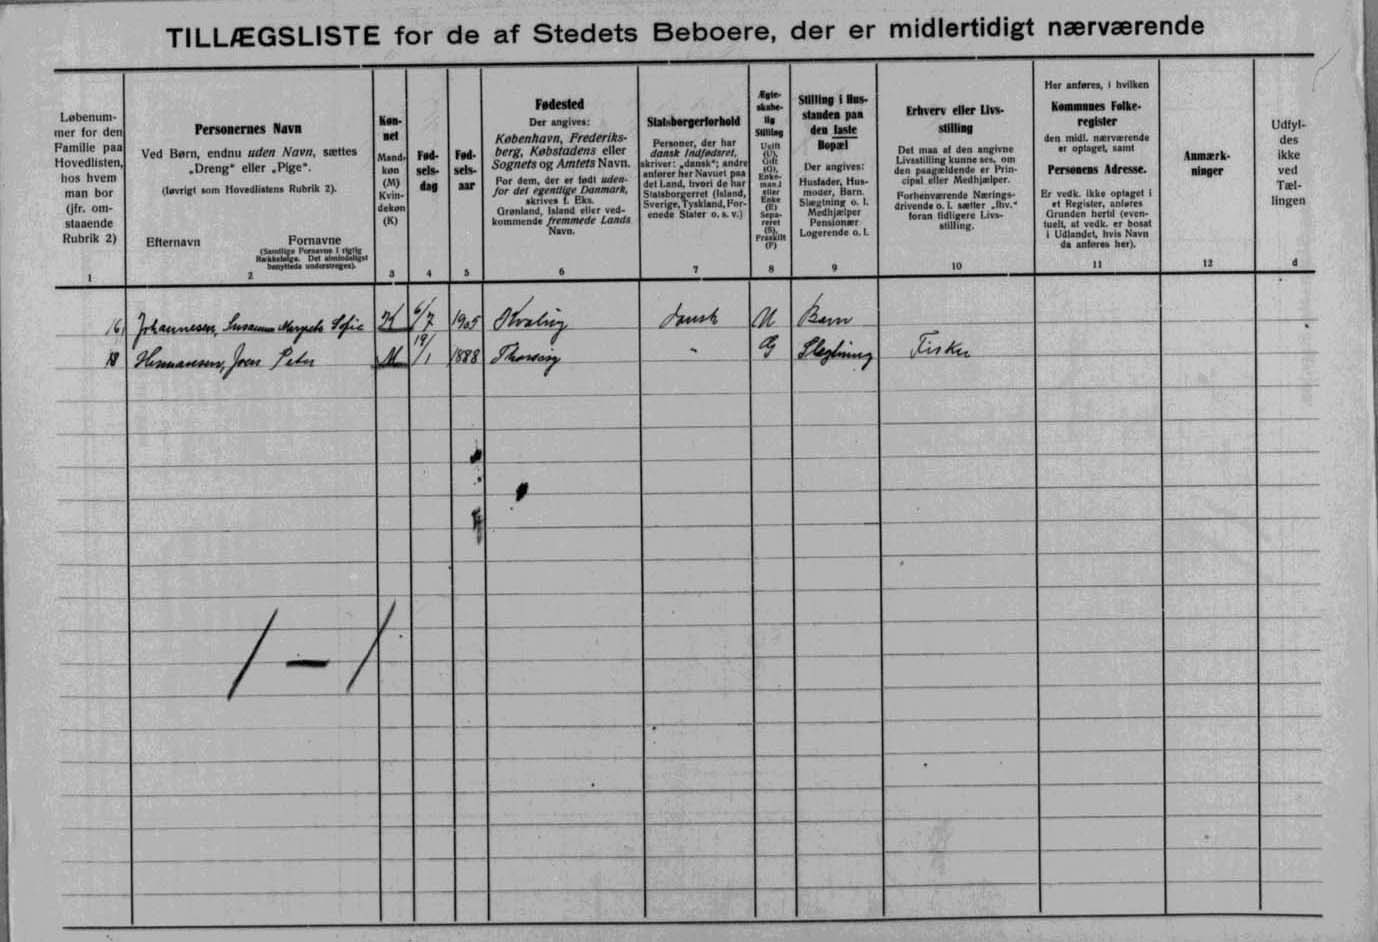 TILLÆGSLISTE for de af Stedets Beboere, der er midlertidigt nærværende
Løbenum-
mer for den
Familie paa
Hovedlisten,
hos hvem
man bor
(jfr. om-
staaende
Rubrik 2)
1
Personernes Navn
Ved Børn, endnu uden Navn, sættes
„Dreng“ eller „Pige“.
(Iøvrigt som Hovedlistens Rubrik 2).
Efternavn Fornavne
(Samtlige Fornavne i rigtig
Rækkefølge. Det almindeligst
benyttede understreges).
2
Køn-
net
Mand-
køn
(M)
Kvin-
dekøn
(K)
3
Fød-
sels-
dag
4
Fød-
sels-
aar
5
Fødested
Der angives:
København, Frederiks-
berg, Købstadens eller
Sognets og Amtets Navn.
For dem, der er født uden-
for det egentlige Danmark,
skrives f. Eks.
Grønland, Island eller ved-
kommende fremmede Lands
Navn.
6
Statsborgerforhold
Personer, der har
dansk Indfødsret,
skriver: „dansk“; andre
anfører her Navnet paa
det Land, hvori de har
Statsborgerret (Island,
Sverige, Tyskland, For-
enede Stater o. s. v.)
7
Ægte-
skabe-
lig
Stilling
Ugift
(U),
Gift
(G),
Enke-
mand
eller
Enke
(E)
Sepa-
reret
(S),
Fraskilt
(F)
8
Stilling i Hus-
standen paa
den faste
Bopæl
Der angives:
Husfader, Hus-
moder, Barn,
Slægtning o. l.
Medhjælper
Pensionær
Logerende o. l.
9
Erhverv eller Livs-
stilling
Det maa af den angivne
Livsstilling kunne ses, om
den paagældende er Prin-
cipal eller Medhjælper.
Forhenværende Nærings-
drivende o. l. sætter „fhv.“
foran tidligere Livs-
stilling.
10
Her anføres, i hvilken
Kommunes Folke-
register
den midl. nærværende
er optaget, samt
Personens Adresse.
Er vedk. ikke optaget i
et Register, anføres
Grunden hertil (even-
tuelt, at vedk. er bosat
i Udlandet, hvis Navn
da anføres her).
11
Anmærk-
ninger
12
Udfyl-
des
ikke
ved
Tæl-
lingen
d
16, Johannesen, Susanna Margreta Sofie K 6/7 1905 Kvalvig dansk U Barn
18 Hermansen, Joen Peter M 19/1 1888 " G Slægtning Fisker
/ — /